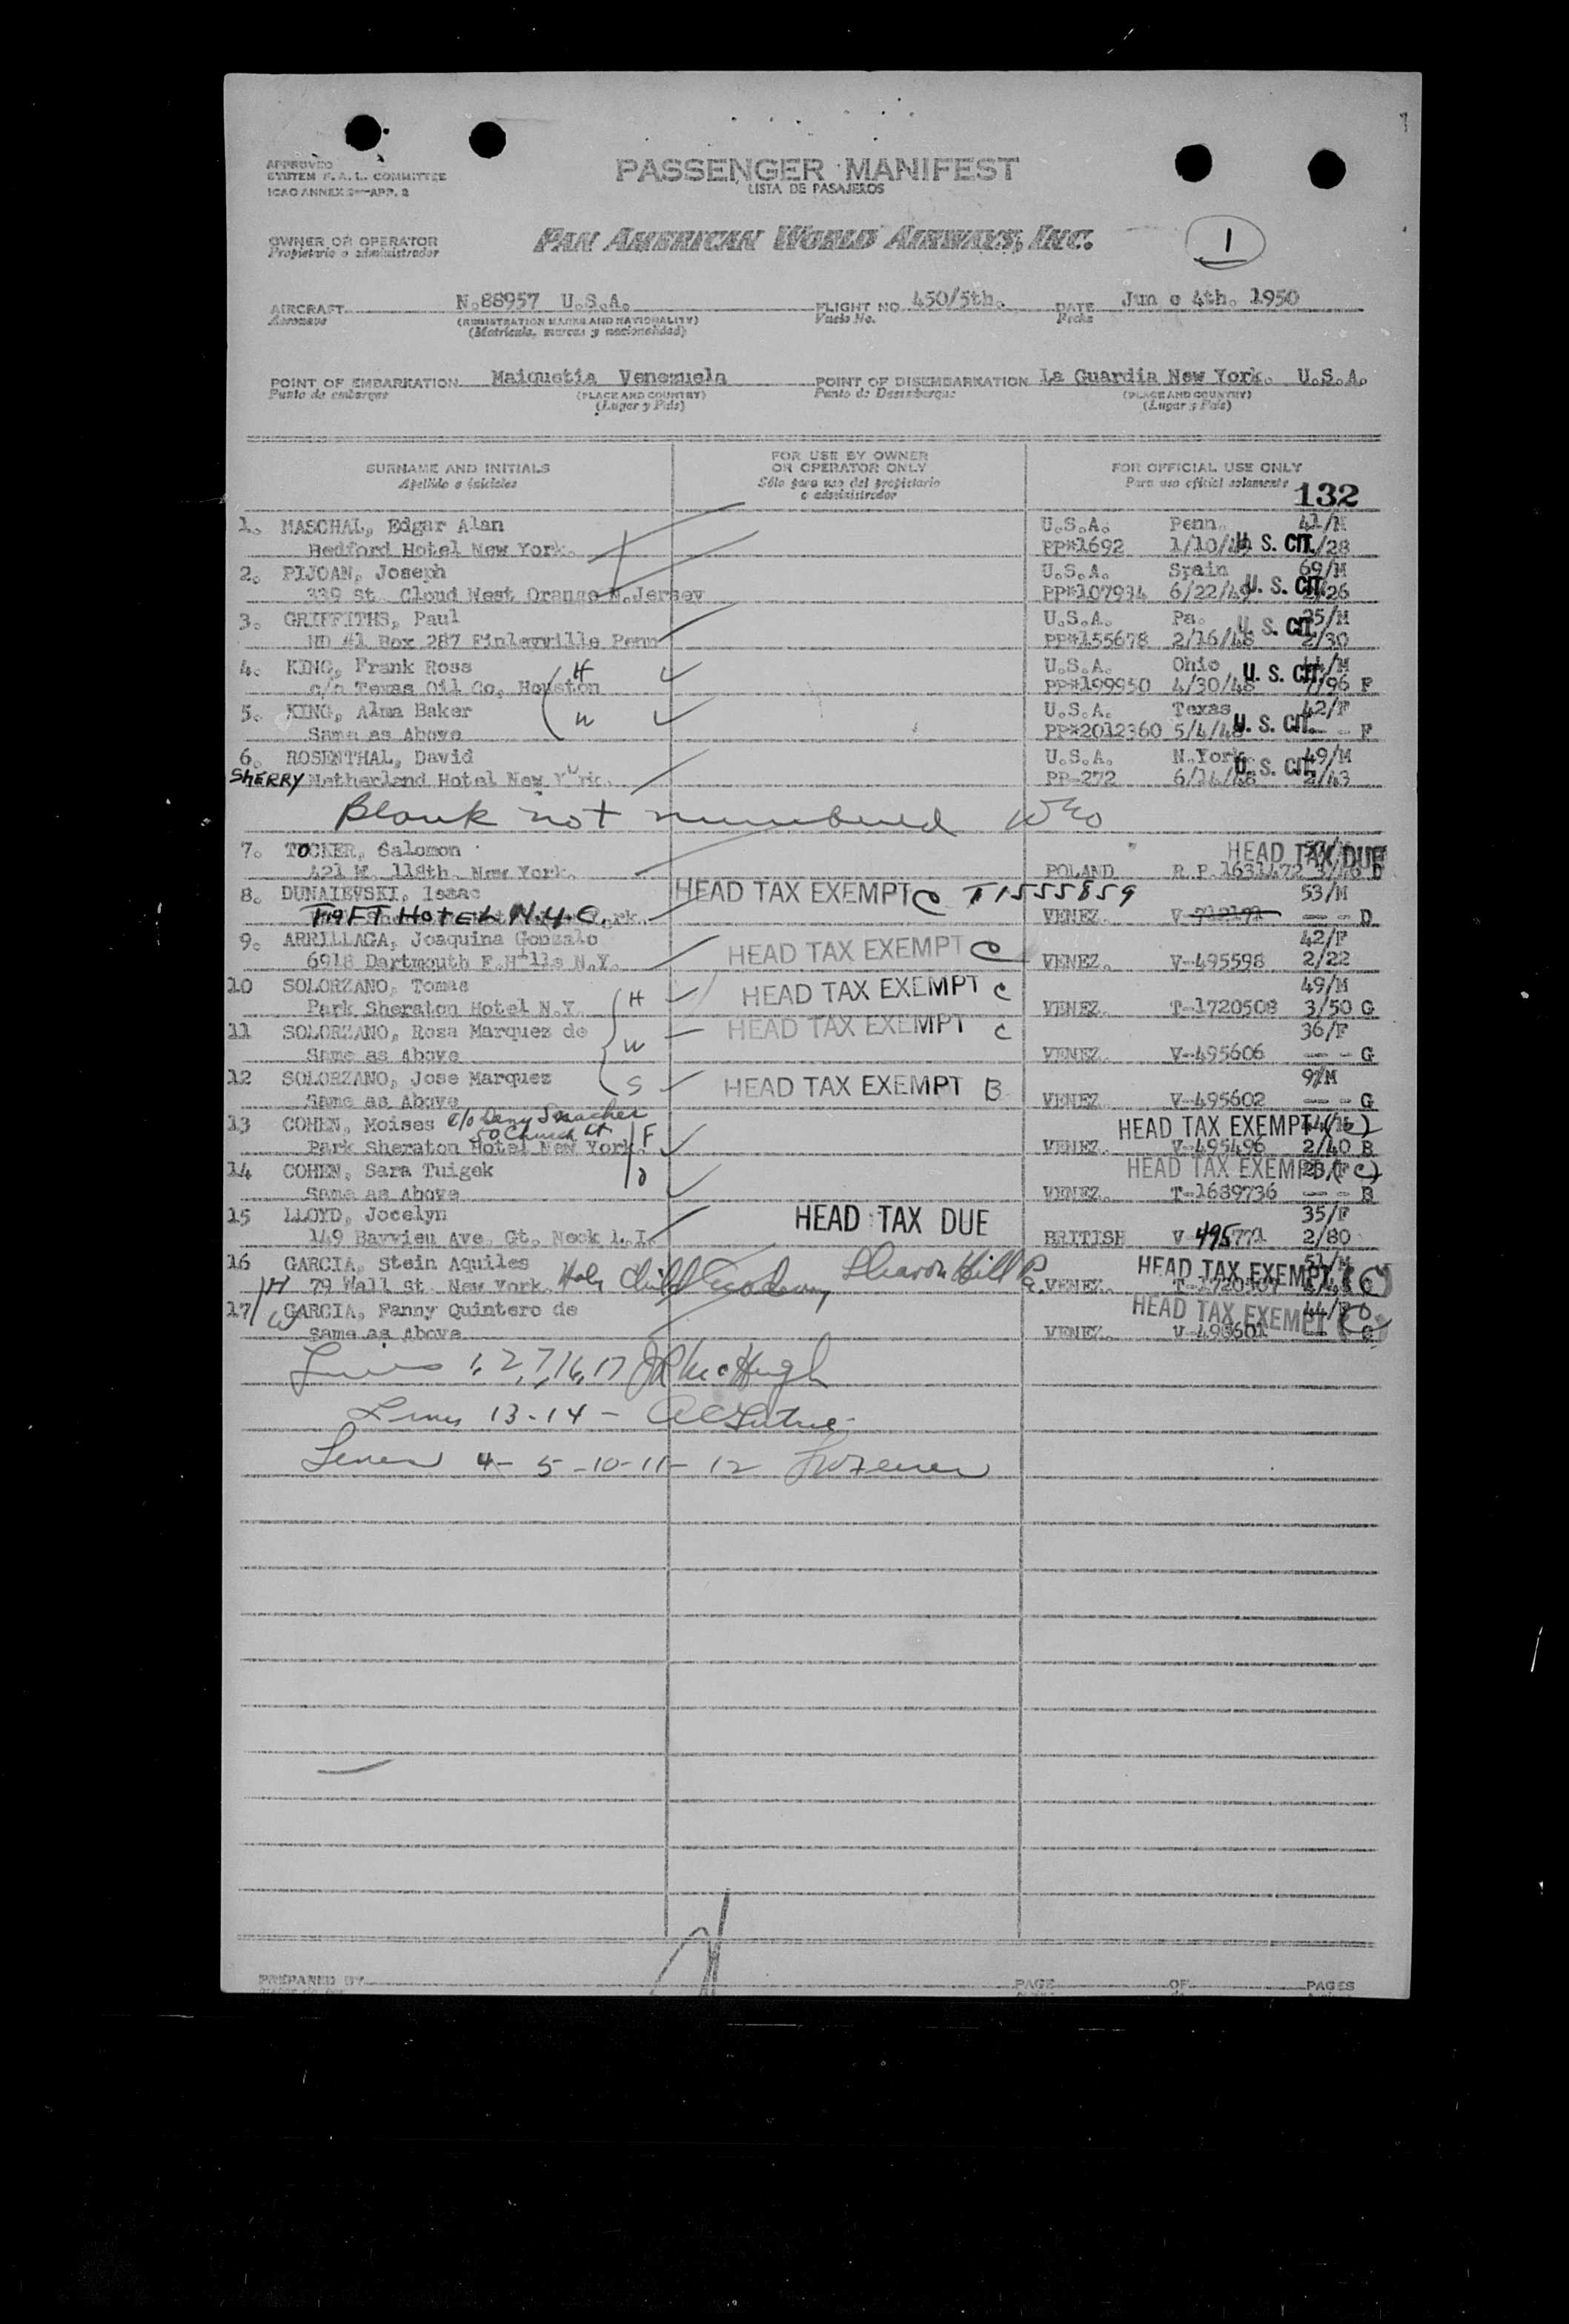 1
APPROVED
SYSTEM F. A. L. COMMITTEE
ICAO ANNEX 9—APP. 2
PASSENGER MANIFEST
LISTA DE PASAJEROS
OWNER OR OPERATOR
Propietario o administrador
PAN AMERICAN WORLD AIRWAYS, INC.
1
AIRCRAFT N.88957 U.S.A. FLIGHT NO. 450/5th. DATE Jun e 4th. 1950
Aeronave (REGISTRATION MARKS AND NATIONALITY) Vuelo No. Fecha
(Matricula, marcas y nacionalidad)
POINT OF EMBARKATION Maiquetia Venezuela POINT OF DISEMBARKATION La Guardia New York. U.S.A.
Punto de embarque (PLACE AND COUNTRY) Punto de Desembarque (PLACE AND COUNTRY)
(Lugar y País) (Lugar y País)
SURNAME AND INITIALS FOR USE BY OWNER OR OPERATOR ONLY FOR OFFICIAL USE ONLY
Apellido e iniciales Sólo para uso del propietario o administrador Para uso oficial solamente
132
1. MASCHAL, Edgar Alan U.S.A. Penn. 41/M
Bedford Hotel New York. PP#1692 1/10/49 U. S. CIT. /28
2. PIJOAN, Joseph U.S.A. Spain 69/M
339 St Cloud West Orange N.Jersey PP#107934 6/22/49 U. S. CIT. /26
3. GRIFFITHS, Paul U.S.A. Pa. 25/M
RD #1 Box 287 Finleyville Penn PP#155678 2/16/48 U. S. CIT. 2/30
4. KING, Frank Ross H U.S.A. Ohio 44/M
c/o Texas Oil Co, Houston PP#199950 4/30/48 U. S. CIT. 7/96 F
5. KING, Alma Baker W U.S.A. Texas 42/F
Same as Above PP#2012360 5/4/48 U. S. CIT. - F
6. ROSENTHAL, David U.S.A. N.York 49/M
SHERRY Netherland Hotel New York. PP-272 6/14/48 U. S. CIT. 2/43
Blank not numbered
7. TOCKER, Salomon HEAD TAX DUE
421 W. 118th. New York. POLAND R.P.1631472 3/46 D
8. DUNAIEVSKI, Isaac HEAD TAX EXEMPT C T1555859 53/M
TAFT HOTEL N.Y.C. VENEZ. V-712191 -- - D
9. ARRILLAGA, Joaquina Gonzalo HEAD TAX EXEMPT C 42/F
6918 Dartmouth F.Hills N.Y. VENEZ. V-495598 2/22
10 SOLORZANO, Tomas H HEAD TAX EXEMPT C 49/M
Park Sheraton Hotel N.Y. VENEZ. T-1720508 3/50 G
11 SOLORZANO, Rosa Marquez de W HEAD TAX EXEMPT C 36/F
Same as Above VENEZ. V-495606 -- - G
12 SOLORZANO, Jose Marquez S HEAD TAX EXEMPT B 9/M
Same as Above VENEZ. V-495602 -- - G
13 COHEN, Moises c/o 50 Church St F HEAD TAX EXEMPT (C)
Park Sheraton Hotel New York. VENEZ. V-495496 2/40 B
14 COHEN, Sara Tuigek D HEAD TAX EXEMPT (C) 23/F
Same as Above VENEZ. T-1689736 -- - B
15 LLOYD, Jocelyn HEAD TAX DUE 35/F
149 Bayview Ave. Gt. Neck L.I. BRITISH V 495771 2/80
16 GARCIA, Stein Aquiles HEAD TAX EXEMPT (C) 51/M
H 79 Wall St. New York. Holy Child Academy Sharon Hill Pa. VENEZ. T-1720507
17 W GARCIA, Fanny Quintero de HEAD TAX EXEMPT (C) 44/F
Same as Above VENEZ. V-495601
Lines 1, 2, 7, 16, 17 JR McHugh
Lines 13-14 -
Lines 4-5-10-11-12
PREPARED BY PAGE OF PAGES